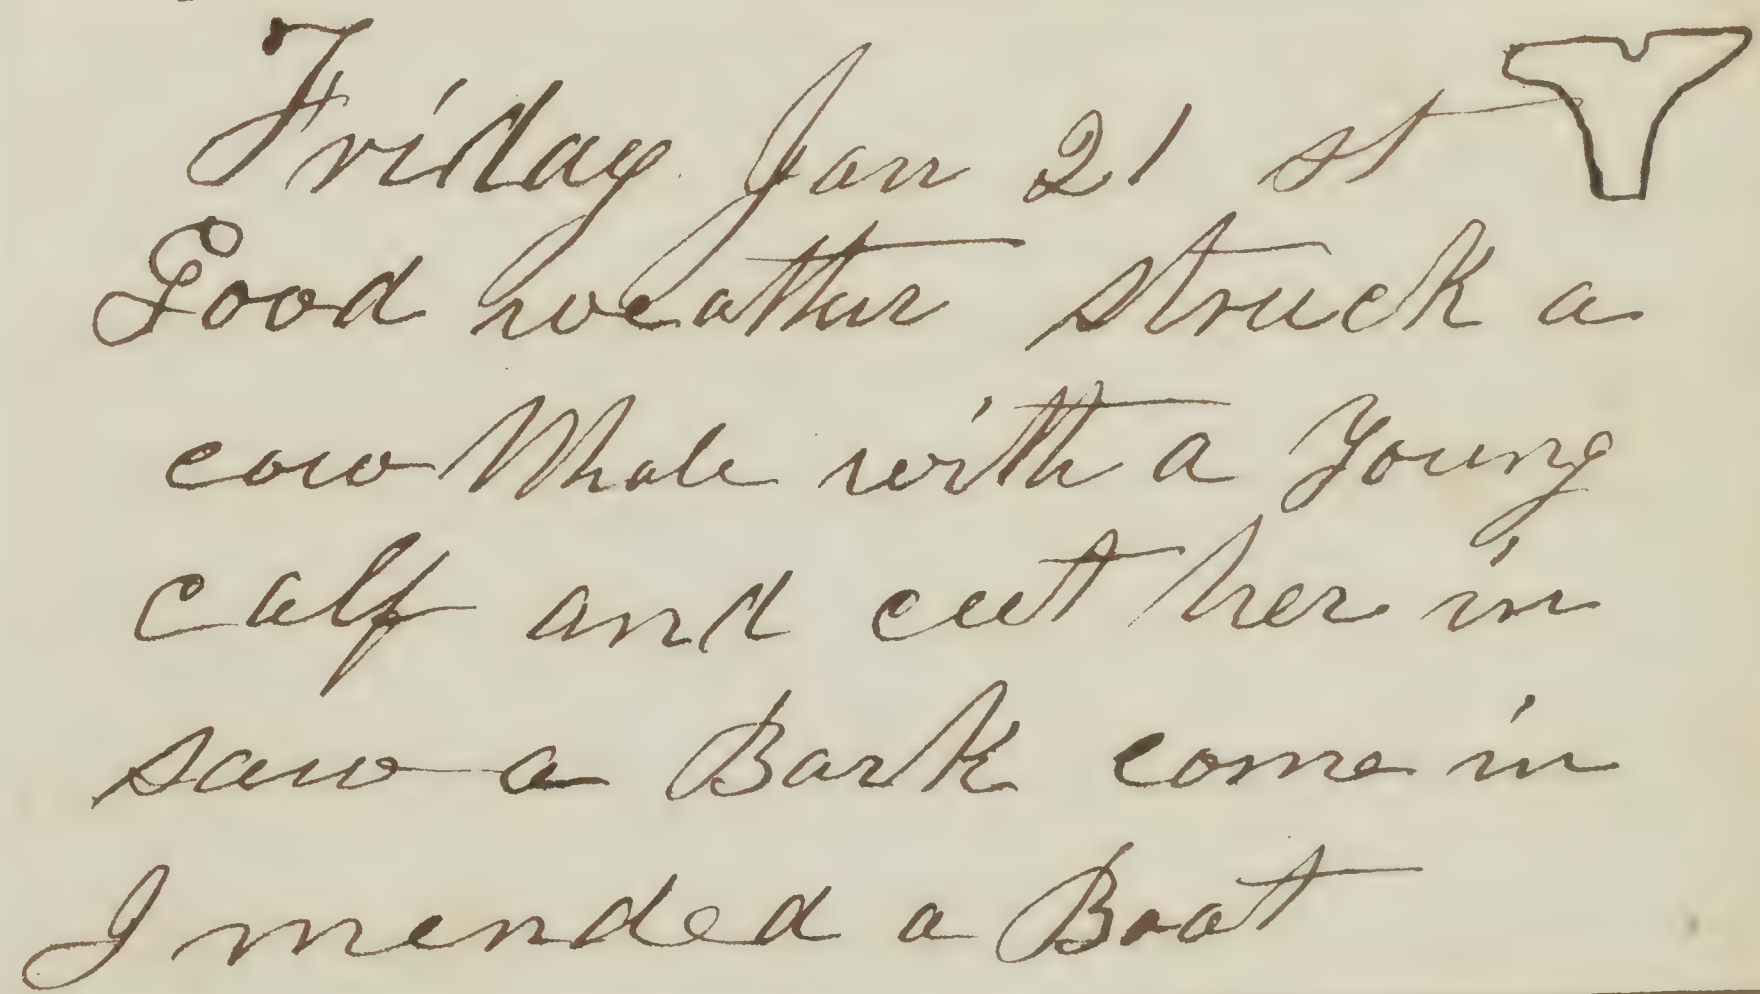 Friday Jan 21 st
Good weather struck a
cow Whale with a Young
calf and cut her in
saw a Bark come in
I mended a Boat